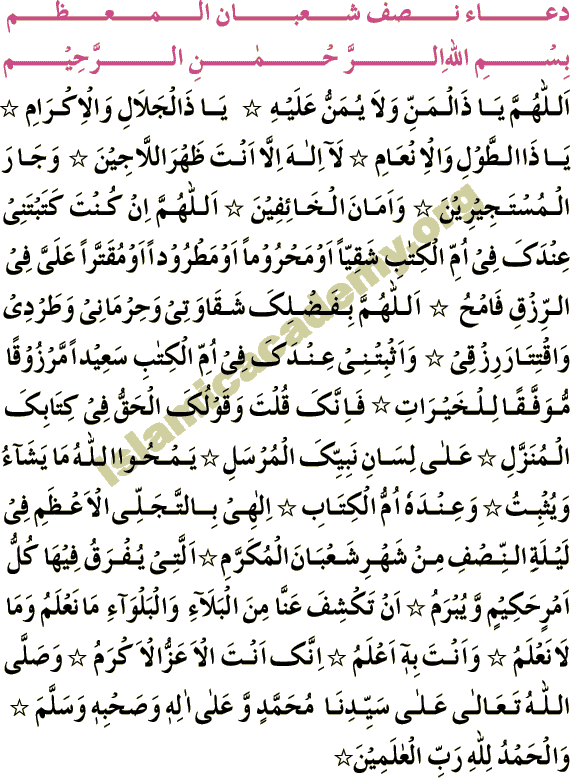 دعاء نصف شعبان المعظم
بِسْمِ اللهِ الرَّحْمٰنِ الرَّحِيْمِ
اَللّٰهُمَّ يَا ذَالْمَنِّ وَلَا يُمَنُّ عَلَيْهِ ☆ يَا ذَالْجَلَالِ وَالْاِكْرَامِ ☆
يَا ذَاالطَّوْلِ وَالْاِنْعَامِ ☆ لَآ اِلٰهَ اِلَّا اَنْتَ ظَهْرَاللَّاجِيْنَ ☆ وَجَارَ
الْمُسْتَجِيْرِيْنَ ☆ وَاَمَانَ الْخَائِفِيْنَ ☆ اَللّٰهُمَّ اِنْ كُنْتَ كَتَبْتَنِيْ
عِنْدَكَ فِيْ اُمِّ الْكِتٰبِ شَقِيًّا اَوْمَحْرُوْماً اَوْمَطْرُوْداً اَوْمُقَتَّراً عَلَيَّ فِي
الرِّزْقِ فَامْحُ ☆ اَللّٰهُمَّ بِفَضْلِكَ شَقَاوَتِيْ وَحِرْمَانِيْ وَطَرْدِيْ
وَاقْتِتَارَرِزْقِيْ ☆ وَاَثْبِتْنِيْ عِنْدَكَ فِيْ اُمِّ الْكِتٰبِ سَعِيْداً مَّرْزُوْقًا
مُّوَفَّقًا لِلْخَيْرَاتِ ☆ فَاِنَّكَ قُلْتَ وَقَوْلُكَ الْحَقُّ فِيْ كِتَابِكَ
الْمُنَزَّلِ ☆ عَلٰى لِسَانِ نَبِيِّكَ الْمُرْسَلِ ☆ يَمْحُوااللّٰهُ مَا يَشَآءُ
وَيُثْبِتُ ☆ وَعِنْدَهٗ اُمُّ الْكِتَابِ ☆ اِلٰهِيْ بِالتَّجَلِّي الْاَعْظَمِ فِيْ
لَيْلَةِ النِّصْفِ مِنْ شَهْرِ شَعْبَانَ الْمُكَرَّمِ ☆ اَلَّتِيْ يُفْرَقُ فِيْهَا كُلُّ
اَمْرٍحَكِيْمٍ وَّيُبْرَمُ ☆ اَنْ تَكْشِفَ عَنَّا مِنَ الْبَلَآءِ وَالْبَلْوَآءِ مَا نَعْلَمُ وَمَا
لَا نَعْلَمُ ☆ وَاَنْتَ بِهٖٓ اَعْلَمُ ☆ اِنَّكَ اَنْتَ الْاَعَزُّالْاَكْرَمُ ☆ وَصَلَّى
اللّٰهُ تَعَالٰى عَلٰى سَيِّدِنَا مُحَمَّدٍ وَّ عَلٰى اٰلِهٖ وَصَحْبِهٖ وَسَلَّمَ ☆
وَالْحَمْدُ لِلّٰهِ رَبِّ الْعٰلَمِيْنَ☆
Islamicacademy.org